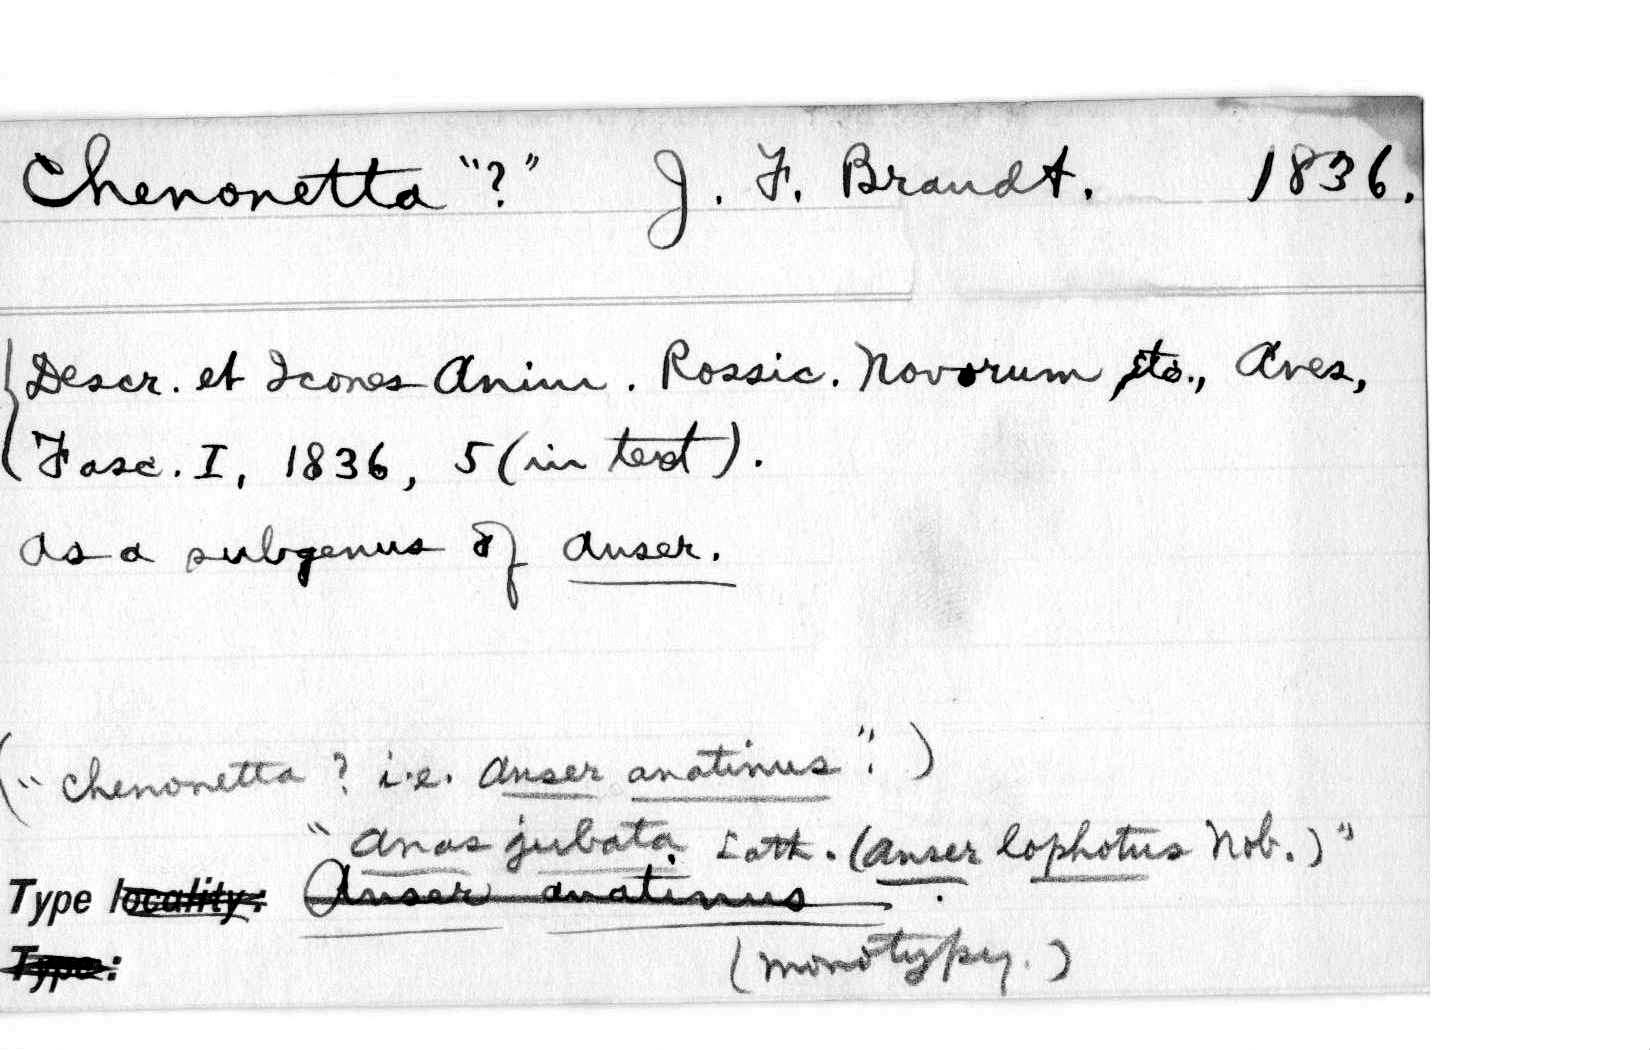 Chenonetta "?" J. F. Brandt. 1836.
Descr. et Icones Anim. Rossic. Novorum, etc., Aves,
Fasc. I, 1836, 5 (in text).
As a subgenus of Anser.
("Chenonetta ? i.e. Anser anatinus".)
"Anas jubata Lath. (Anser lophotus Nob.)"
Type locality: Anser anatinus.
Type: (monotypy.)